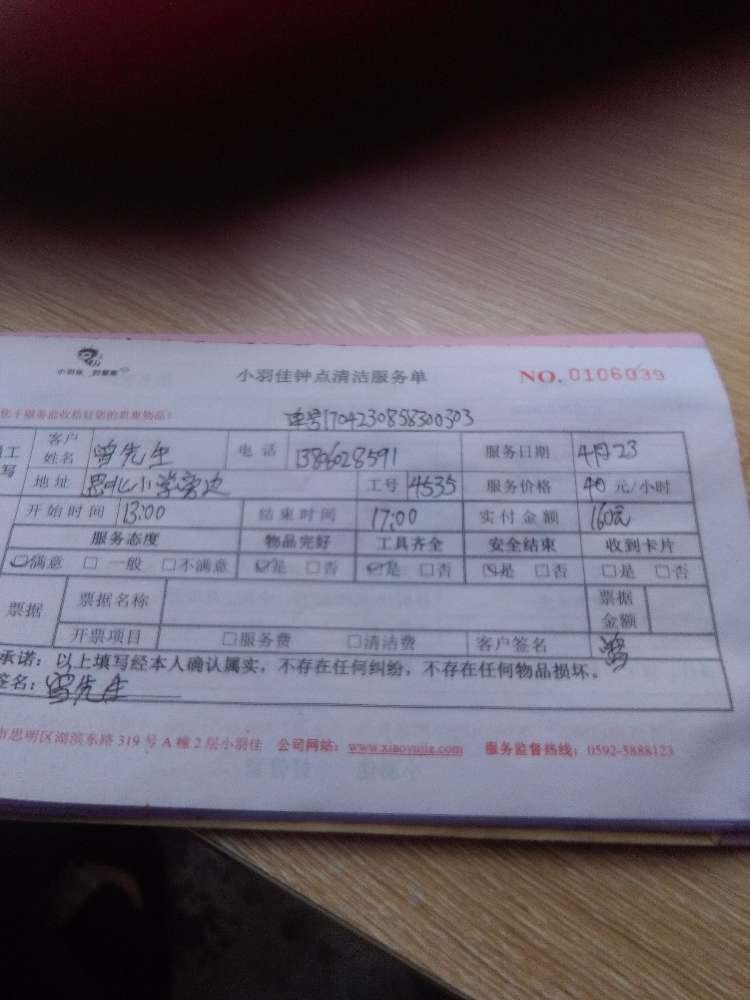 小羽佳
小羽佳钟点清洁服务单
NO. 0106039
单号1704230858300303
客户姓名 曾先生 电话 13806028591 服务日期 4月23
地址 思北小学旁边 工号 4535 服务价格 40 元/小时
开始时间 13:00 结束时间 17:00 实付金额 160元
服务态度 物品完好 工具齐全 安全结束 收到卡片
满意 □ 一般 □不满意 是 □否 是 □否 是 □否 □是 □否
票据 票据名称 票据金额
开票项目 □服务费 □清洁费 客户签名 曾
承诺：以上填写经本人确认属实，不存在任何纠纷，不存在任何物品损坏。
签名：曾先生
市思明区湖滨东路319号A幢2层小羽佳 公司网站：www.xiaoyujia.com 服务监督热线：0592-5888123